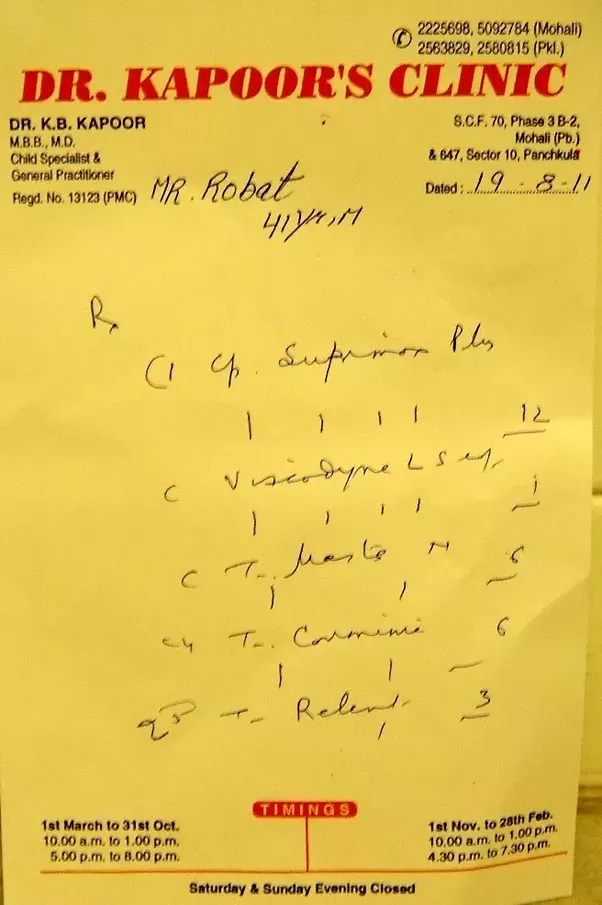 2225698, 5092784 (Mohali)
2563829, 2580815 (Pkl.)
DR. KAPOOR'S CLINIC
DR. K.B. KAPOOR
M.B.B., M.D.
Child Specialist &
General Practitioner
Regd. No. 13123 (PMC)
S.C.F. 70, Phase 3 B-2,
Mohali (Pb.)
& 647, Sector 10, Panchkula
Dated : 19-8-11
MR. Robat
41 yr, M
Rx
(1 Cp. Suprimox Plus
1 1 1 1 12
Viscodyne
1 1 1 1 1
T. N 6
1 1
T. 6
1 1
T. Relent 3
1
TIMINGS
1st March to 31st Oct.
10.00 a.m. to 1.00 p.m.
5.00 p.m. to 8.00 p.m.
1st Nov. to 28th Feb.
10.00 a.m. to 1.00 p.m.
4.30 p.m. to 7.30 p.m.
Saturday & Sunday Evening Closed